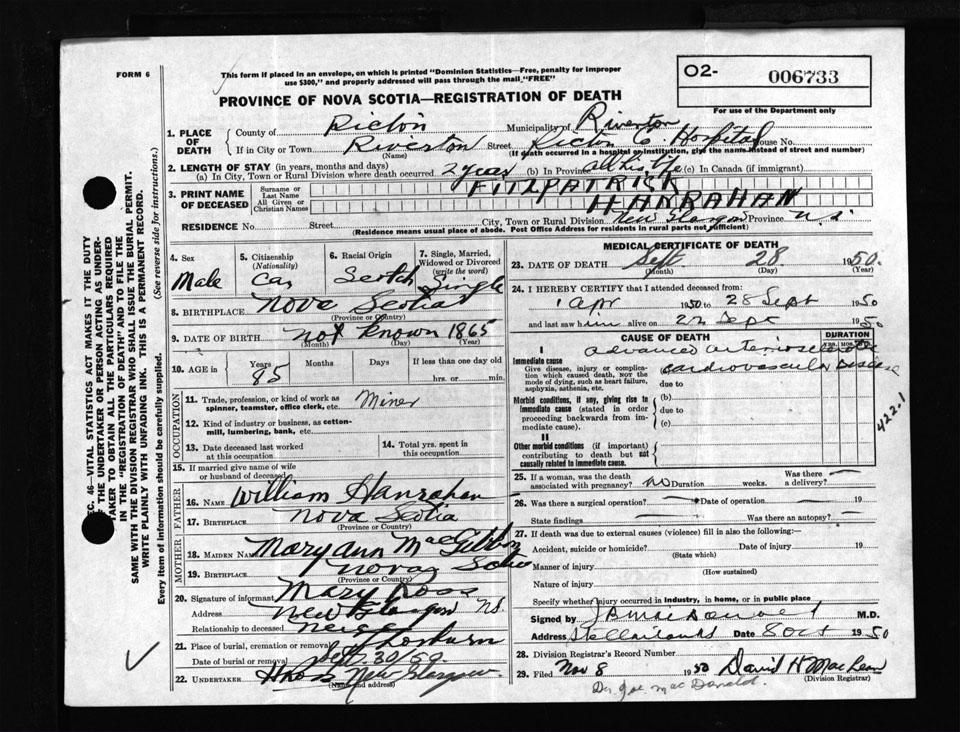 FORM 6
This form if placed in an envelope, on which is printed "Dominion Statistics—Free, penalty for improper
use $300," and properly addressed will pass through the mail "FREE"
PROVINCE OF NOVA SCOTIA—REGISTRATION OF DEATH
O2- 006733
For use of the Department only
1. PLACE OF DEATH
County of Pictou Municipality of Riverton
If in City or Town Riverton Street Pictou C Hospital House No.
(Name) (If death occurred in a hospital or institution, give the name instead of street and number)
2. LENGTH OF STAY (in years, months and days)
(a) In City, Town or Rural Division where death occurred 2 years (b) In Province all his life (c) In Canada (if immigrant)
3. PRINT NAME OF DECEASED
Surname or Last Name FITZPATRICK
All Given or Christian Names HANRAHAN
RESIDENCE No. Street City, Town or Rural Division New Glasgow Province N.S.
(Residence means usual place of abode. Post Office Address for residents in rural parts not sufficient)
4. Sex Male
5. Citizenship (Nationality) Can
6. Racial Origin Scotch
7. Single, Married, Widowed or Divorced (write the word) Single
8. BIRTHPLACE Nova Scotia
(Province or Country)
9. DATE OF BIRTH not known 1865
(Month) (Day) (Year)
10. AGE in Years 85 Months Days If less than one day old
hrs. or min.
OCCUPATION
11. Trade, profession, or kind of work as
spinner, teamster, office clerk, etc. Miner
12. Kind of industry or business, as cotton-
mill, lumbering, bank, etc.
13. Date deceased last worked
at this occupation
14. Total yrs. spent in
this occupation
15. If married give name of wife
or husband of deceased
FATHER
16. NAME William Hanrahan
17. BIRTHPLACE Nova Scotia
(Province or Country)
MOTHER
18. MAIDEN NAME Mary Ann MacGibbon
19. BIRTHPLACE Nova Scotia
(Province or Country)
20. Signature of informant Mary Ross
Address New Glasgow NS.
Relationship to deceased neice
21. Place of burial, cremation or removal Thorburn
Date of burial or removal Sept 30/50
22. UNDERTAKER H Ross New Glasgow
(Name and address)
MEDICAL CERTIFICATE OF DEATH
23. DATE OF DEATH Sept 28 1950.
(Month) (Day) (Year)
24. I HEREBY CERTIFY that I attended deceased from:
1 apr 1950 to 28 Sept 1950
and last saw him alive on 22 Sept 1950
CAUSE OF DEATH DURATION
YRS. MOS.
I
Immediate cause
advanced arteriosclerotic
cardiovascular disease
Give disease, injury or compli-
cation which caused death, not the
mode of dying, such as heart failure,
asphyxia, asthenia, etc.
due to
Morbid conditions, if any, giving rise to
immediate cause (stated in order
proceeding backwards from im-
mediate cause).
(b)
due to
(c)
422.1
II
Other morbid conditions (if important)
contributing to death but not
causally related to immediate cause.
25. If a woman, was the death
associated with pregnancy? no Duration weeks. Was there a delivery? —
26. Was there a surgical operation? — Date of operation — 19
State findings — Was there an autopsy? —
27. If death was due to external causes (violence) fill in also the following:—
Accident, suicide or homicide? Date of injury 19
(State which)
Manner of injury
(How sustained)
Nature of injury
Specify whether injury occurred in industry, in home, or in public place
Signed by M.D.
Address Stellarton Date 8 Oct 1950
28. Division Registrar's Record Number
29. Filed Nov 8 1950 David H MacLean
(Division Registrar)
Dr. Joe. MacDonald.
SEC. 46—VITAL STATISTICS ACT MAKES IT THE DUTY
OF THE UNDERTAKER OR PERSON ACTING AS UNDER-
TAKER TO OBTAIN ALL THE PARTICULARS REQUIRED
IN THE "REGISTRATION OF DEATH" AND TO FILE THE
SAME WITH THE DIVISION REGISTRAR WHO SHALL ISSUE THE BURIAL PERMIT.
WRITE PLAINLY WITH UNFADING INK. THIS IS A PERMANENT RECORD.
Every item of information should be carefully supplied. (See reverse side for instructions.)